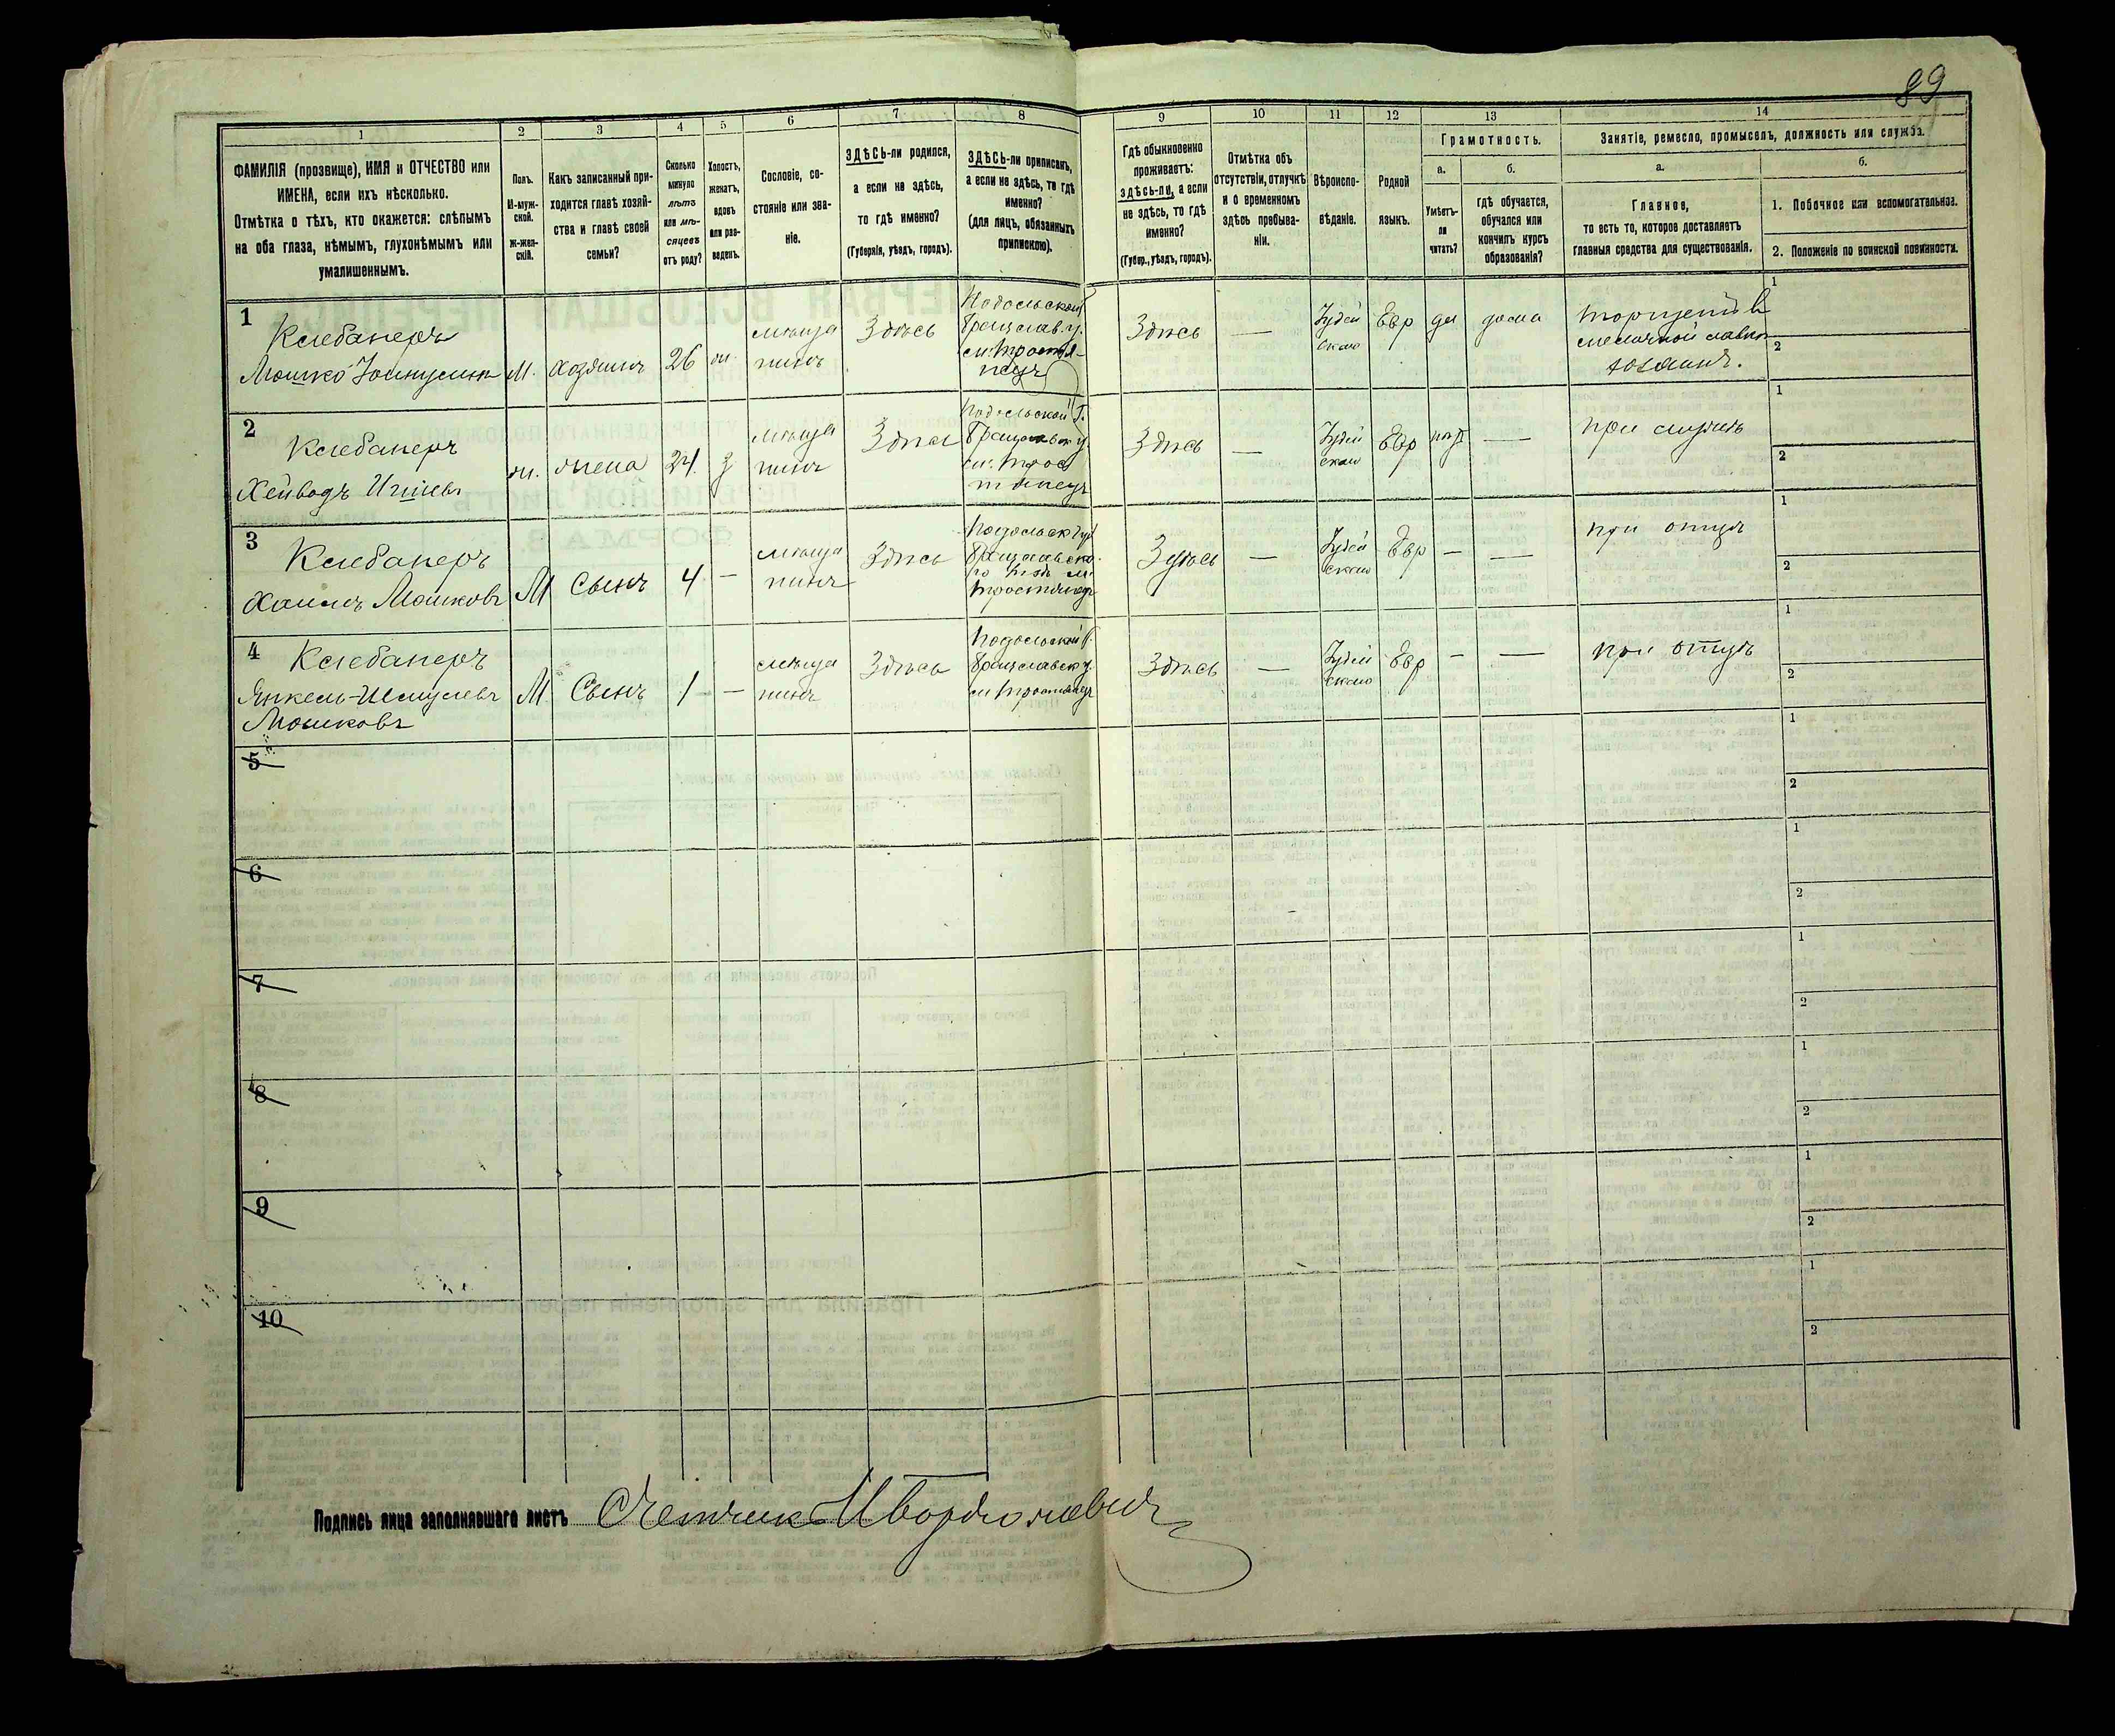 89
1
2
3
4
5
6
7
8
9
10
11
12
13
14
ФАМИЛІЯ (прозвище), ИМЯ и ОТЧЕСТВО или
ИМЕНА, если ихъ нѣсколько.
Отмѣтка о тѣхъ, кто окажется: слѣпымъ
на оба глаза, нѣмымъ, глухонѣмымъ или
умалишеннымъ.
Полъ.
М-муж-
ской.
Ж-жен-
скій.
Какъ записанный при-
ходится главѣ хозяй-
ства и главѣ своей
семьи?
Сколько
минуло
лѣтъ
или мѣ-
сяцевъ
отъ роду?
Холостъ,
женатъ,
вдовъ
или раз-
веденъ.
Сословіе, со-
стояніе или зва-
ніе.
ЗДѢСЬ-ли родился,
а если не здѣсь,
то гдѣ именно?
(Губернія, уѣздъ, городъ).
ЗДѢСЬ-ли приписанъ,
а если не здѣсь, то гдѣ
именно?
(для лицъ, обязанныхъ
припискою).
Гдѣ обыкновенно
проживаетъ:
здѣсь-ли, а если
не здѣсь, то гдѣ
именно?
(Губер., уѣздъ, городъ).
Отмѣтка объ
отсутствіи, отлучкѣ
и о временномъ
здѣсь пребыва-
ніи.
Вѣроиспо-
вѣданіе.
Родной
языкъ.
Грамотность.
а.
Умѣетъ-
ли
читать?
б.
гдѣ обучается,
обучался или
кончилъ курсъ
образованія?
Занятіе, ремесло, промыселъ, должность или служба.
а.
Главное,
то есть то, которое доставляетъ
главныя средства для существованія.
б.
1. Побочное или вспомогательное.
2. Положеніе по воинской повинности.
1
Клебанеръ
Мошко
М.
хозяинъ
26
ж.
мѣща
нинъ
Здѣсь
Подольской
Брацлав. у.
м. Тростя-
нецъ
Здѣсь
—
Іудей
ское
Евр
да
дома
хозяинъ.
1
2
2
Клебанеръ
ж.
жена
24
з
мѣща
нинъ
Здѣсь
Подольской Г.
м. Трос
тянецъ
Здѣсь
—
Іудей
ское
Евр
нѣтъ
—
при мужѣ
1
2
3
Клебанеръ
Хаимъ Мошковъ
М
Сынъ
4
—
мѣща
нинъ
Здѣсь
Тростянецъ
Здѣсь
—
Іудей
ское
Евр
—
—
при отцѣ
1
2
4
Клебанеръ
Янкель-Шмулевъ
Мошковъ
М
Сынъ
1
—
мѣща
нинъ
Здѣсь
Подольской Г.
Брацлавск у.
м Тростянецъ
Здѣсь
—
Іудей
ское
Евр
—
—
при отцѣ
1
2
5
1
2
6
1
2
7
1
2
8
1
2
9
1
2
10
1
2
Подпись лица заполнявшаго листъ Счетчикъ